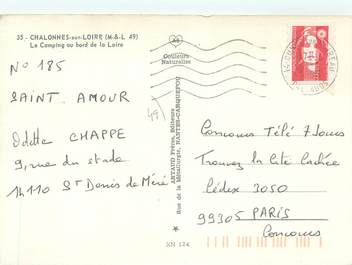 35 - CHALONNES-sur-LOIRE (M-&-L 49)
Le Camping au bord de la Loire
Couleurs
Naturelles
N° 185
SAINT. AMOUR
49)
Odette CHAPPE
9, rue du stade
14110 St Denis de Méré
ARTAUD Frères, Editeurs
Rue de la Métallurgie, NANTES-CARQUEFOU
Concours Télé 7 Jours
Trouvez la Cité Cachée
Cédex 3050
99305 PARIS
Concours
XN 124